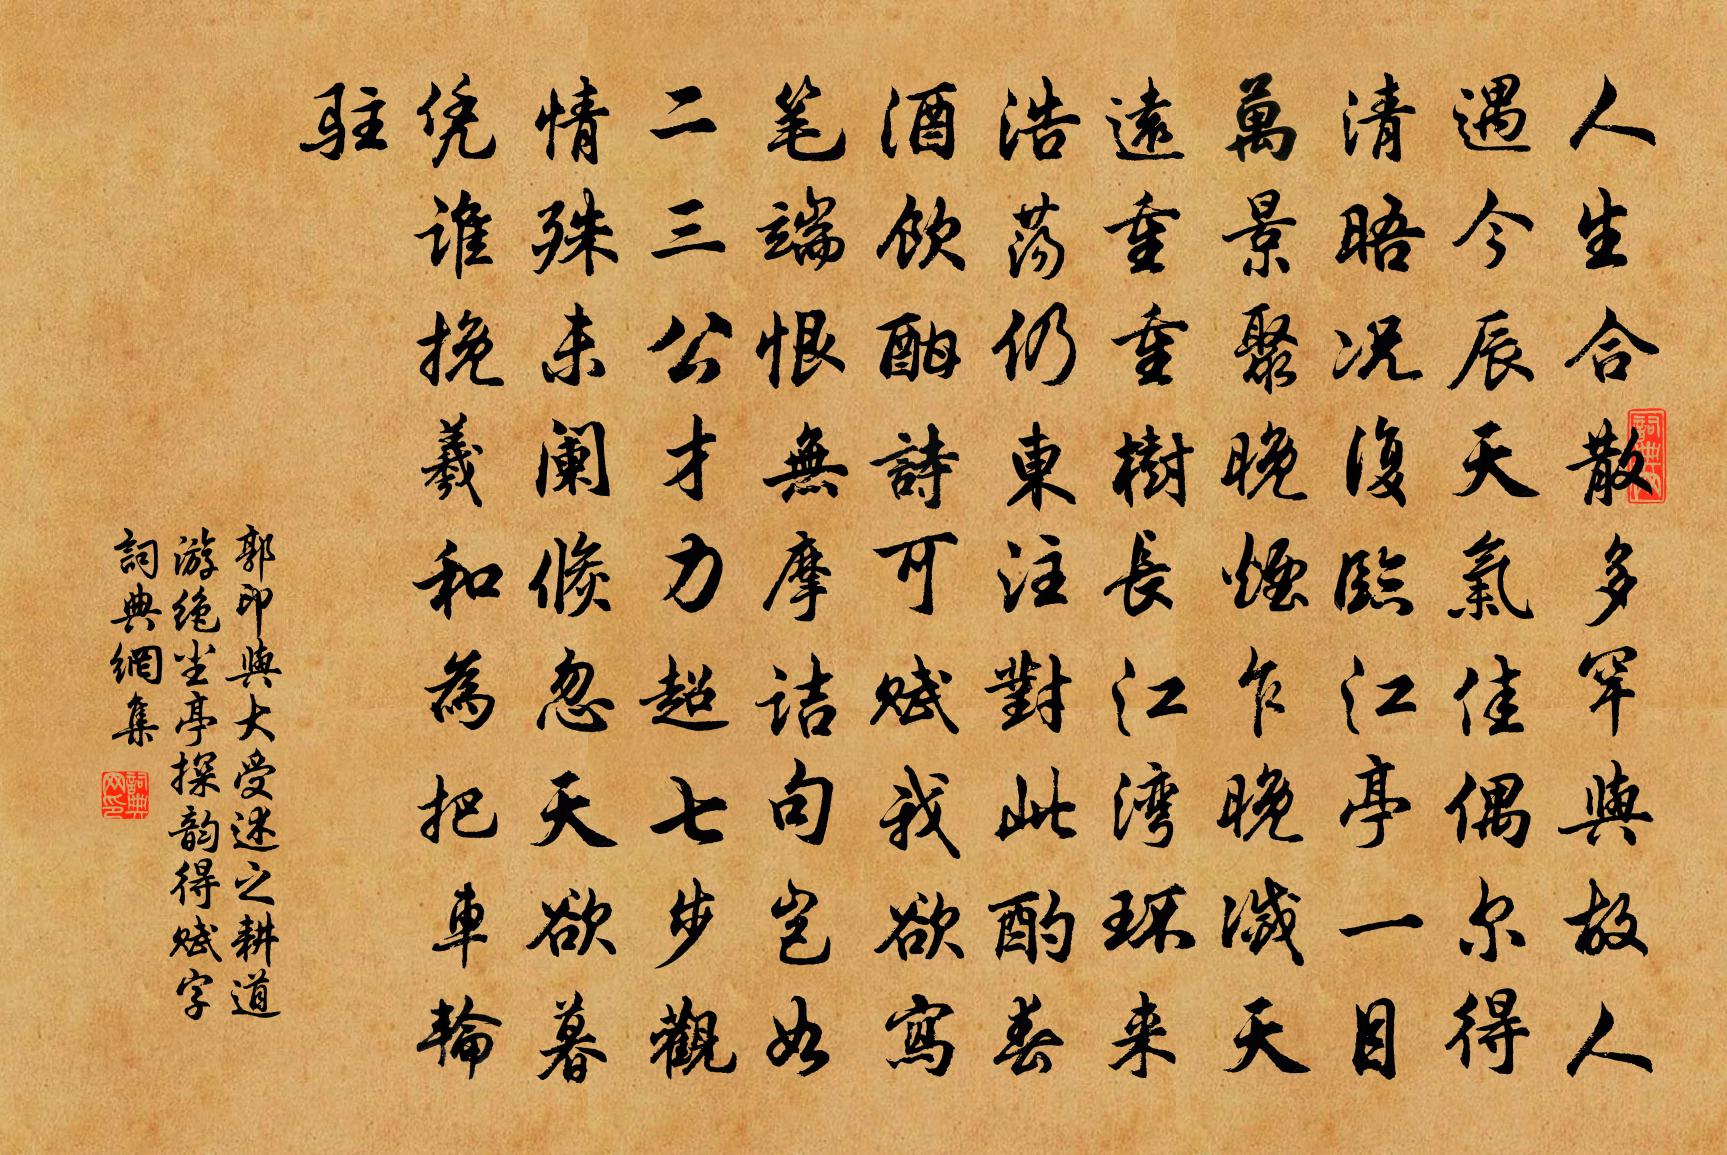 人生合散多罕與故人
遇今辰天氣佳偶尔得
清晤况復臨江亭一目
萬景聚晚煙乍晚滅天
遠重重樹長江湾環来
浩荡仍東注對此酌春
酒飲酣詩可赋我欲寫
笔端恨無摩诘句岂如
二三公才力超七步觀
情殊未阑倏忽天欲暮
凭谁挽羲和為把車輪
駐
郭印與大受述之耕道
游绝尘亭探韵得赋字
詞典網集